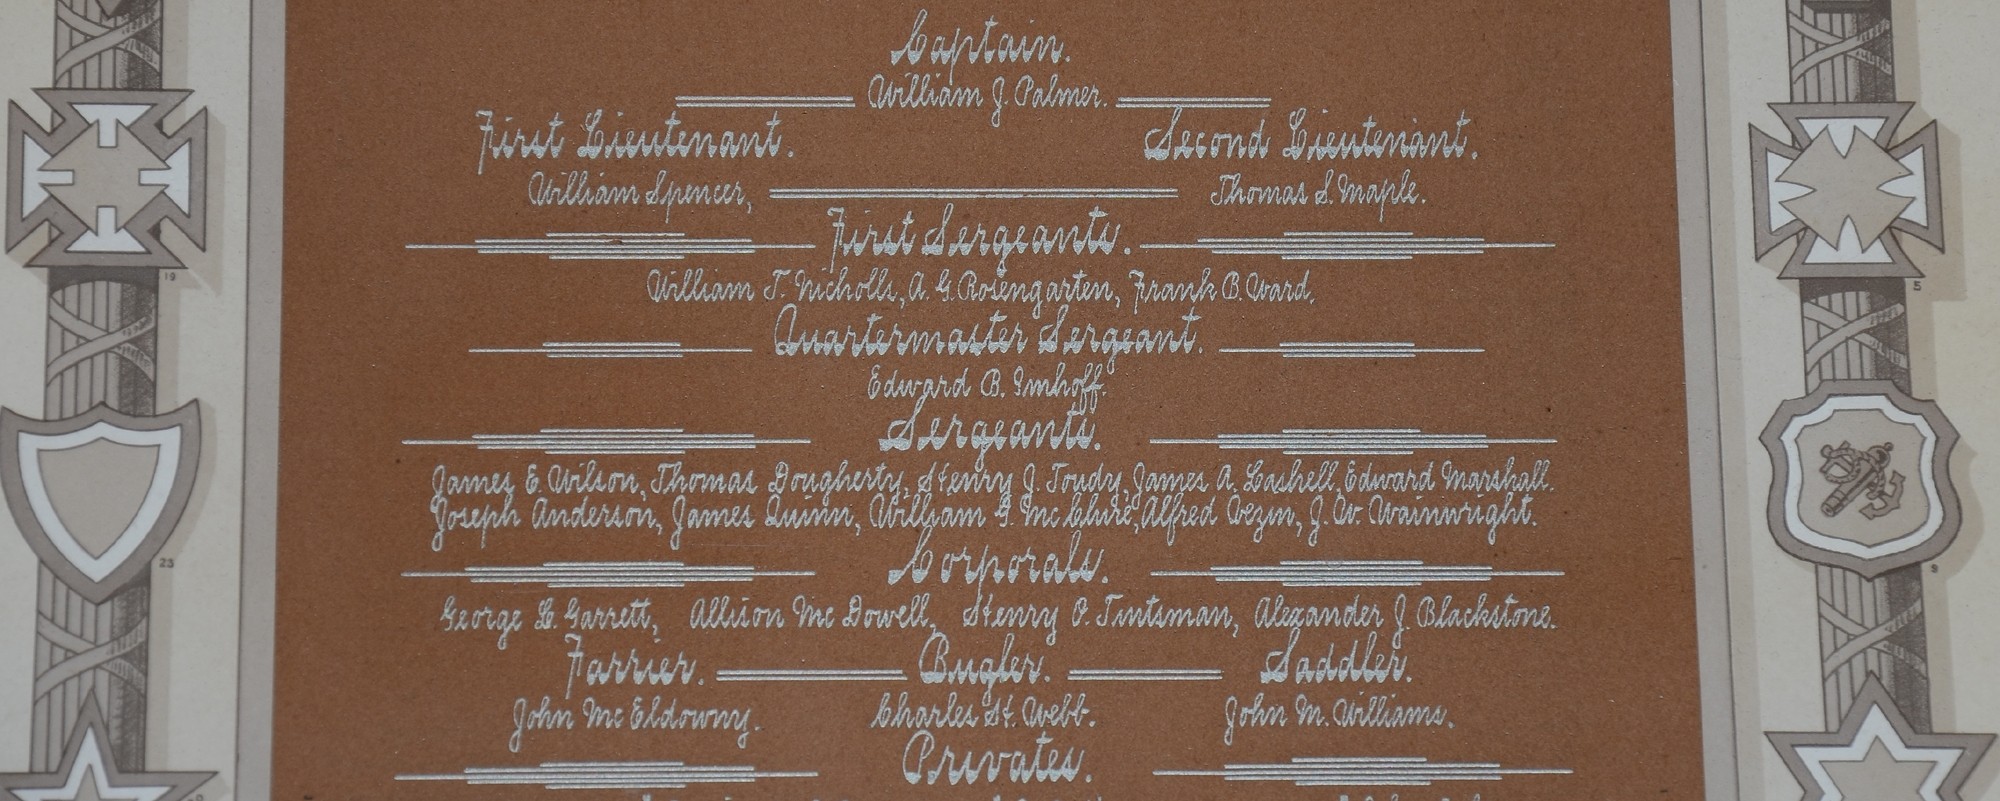 Captain.
William J. Palmer.
First Lieutenant. Second Lieutenant.
William Spencer, Thomas S. Maple.
First Sergeants.
William T. Nicholls, A. G. Rosengarten, Frank B. Ward,
Quartermaster Sergeant.
Edward B. Imhoff.
Sergeants.
James E. Wilson, Thomas Dougherty, Henry J. Toudy, James A. Cashell, Edward Marshall.
Joseph Anderson, James Quinn, William G. McClure, Alfred Vezin, J. W. Wainwright.
Corporals.
George C. Garrett, Allison McDowell, Henry O. Tintsman, Alexander J. Blackstone.
Farrier. Bugler. Saddler.
John McEldowny. Charles H. Webb. John M. Williams.
Privates.
19
5
23
9